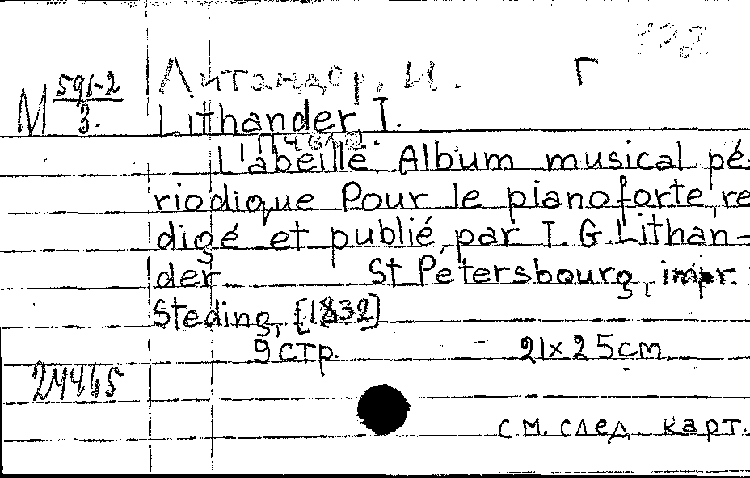 Литандер, И. Г
М 591-2/3.
Lithander I.
L'abeille. Album musical pé-
riodique Pour le pianoforte, re
digé et publié par I. G. Lithan-
der St Pétersbourg, impr.
Steding, [1832]
9 стр. 21x25cm
24465
см. след. карт.